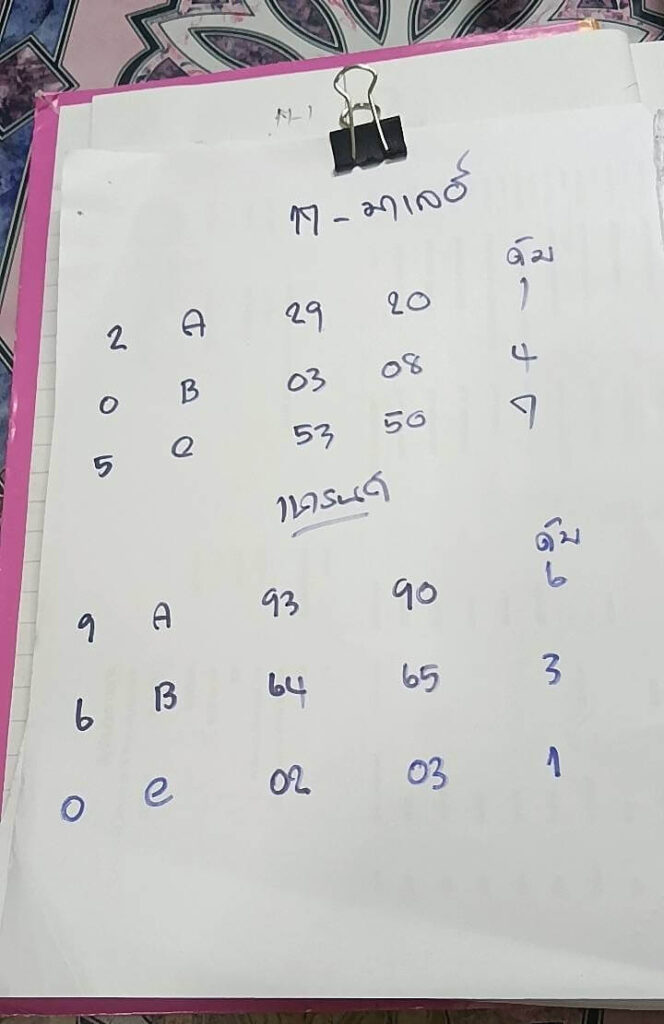 ก-มาเลย์
ดับ
2 A 29 20 1
0 B 03 08 4
5 e 53 50 7
เทรนด์
ดับ
9 A 93 90 6
6 B 64 65 3
0 e 02 03 1